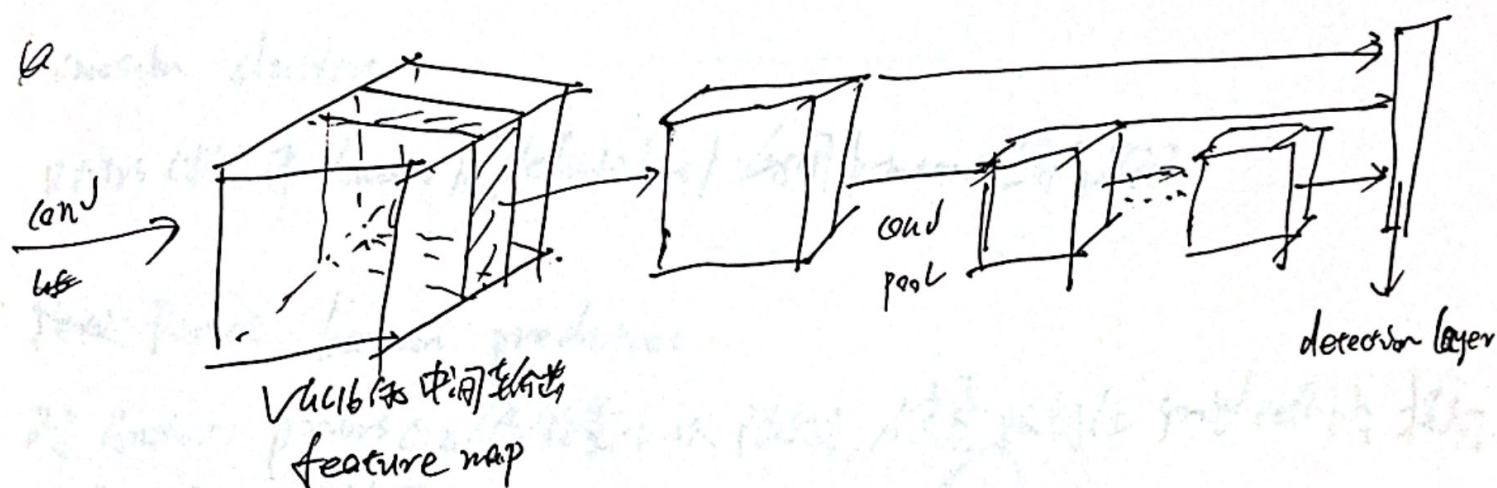 conv
VGG16的中间输出
feature map
conv
pool
detection layer